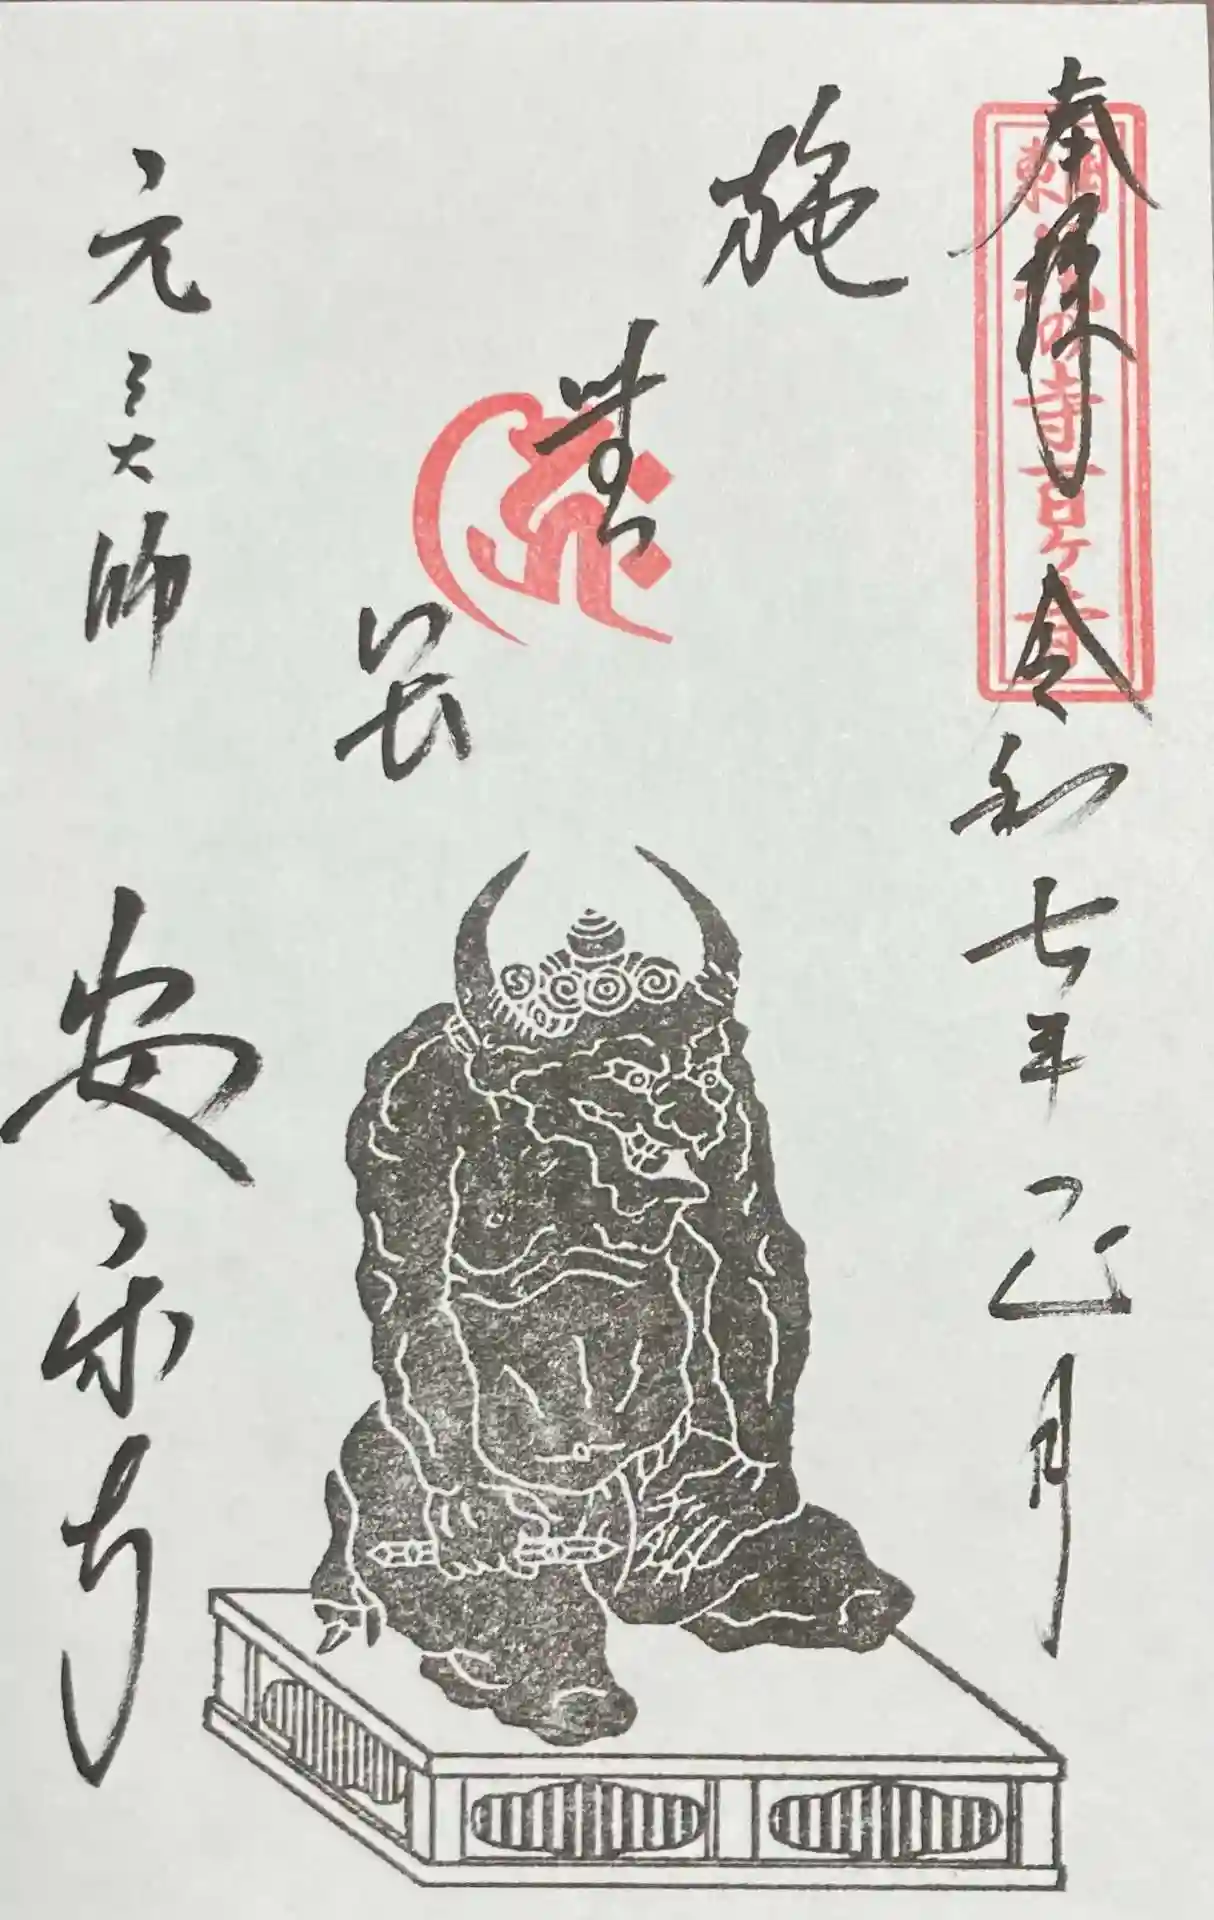 奉拝 令和七年正月
の寺百ヶ
施無畏
元三大師 安楽寺